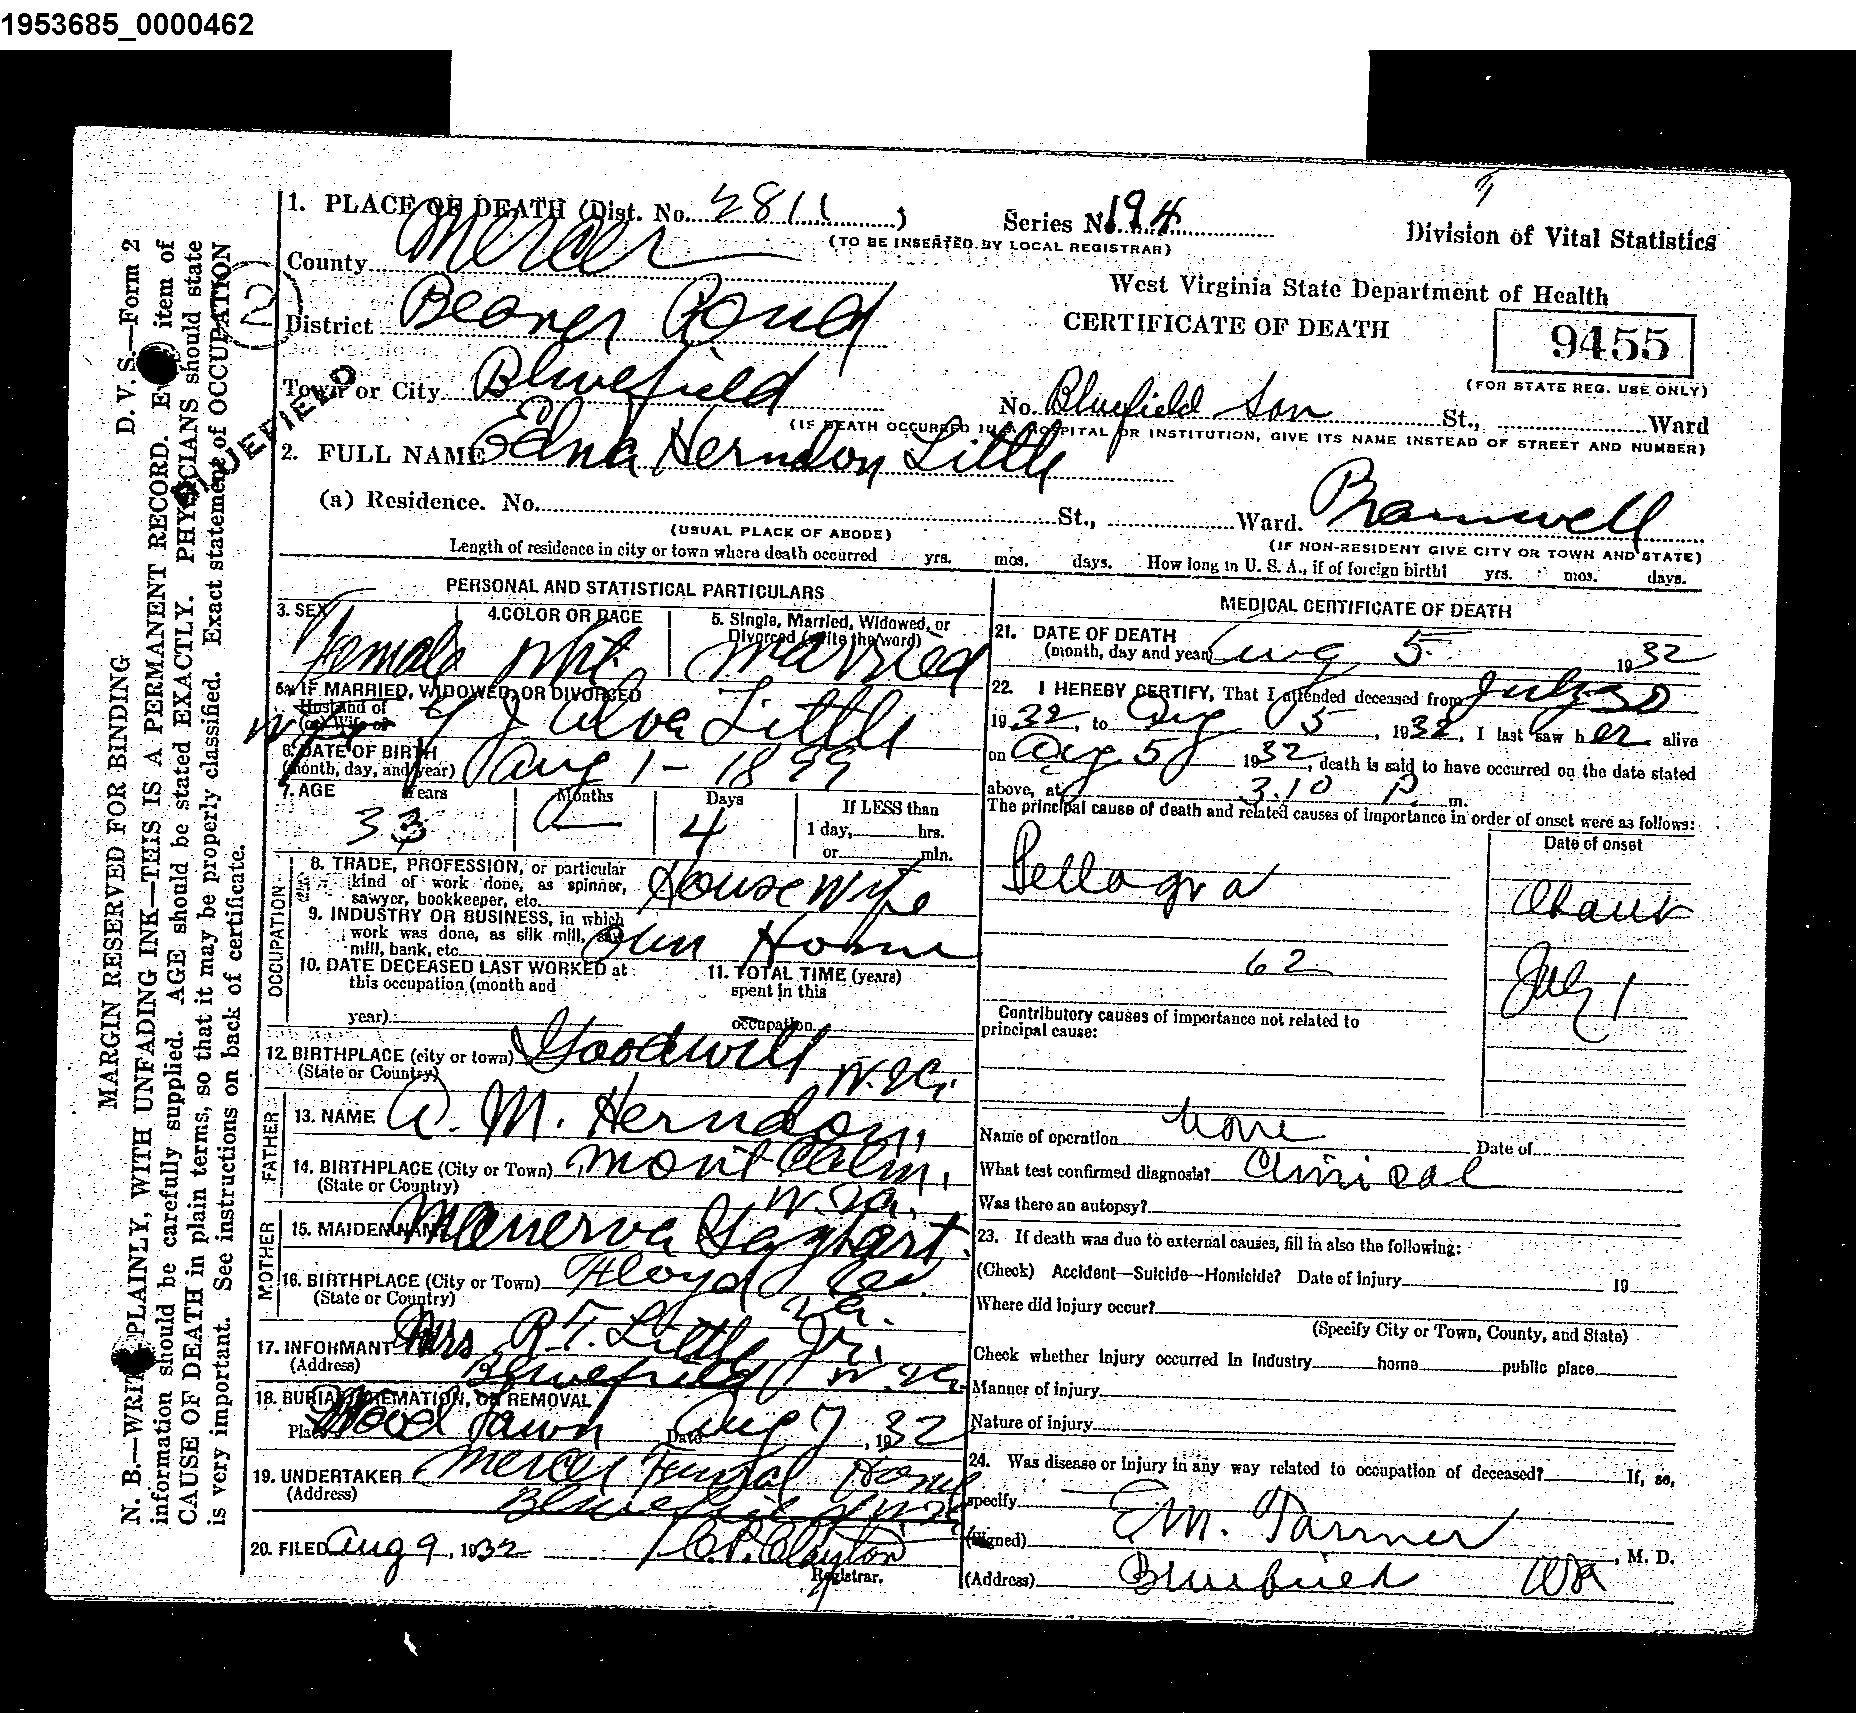 1953685_0000462
1. PLACE OF DEATH (Dist. No. 2811)
Series No. 194
(TO BE INSERTED BY LOCAL REGISTRAR)
Division of Vital Statistics
County Mercer
West Virginia State Department of Health
District Beaver Pond
CERTIFICATE OF DEATH
9455
(FOR STATE REG. USE ONLY)
Town or City Bluefield
No. Bluefield San St., Ward
(IF DEATH OCCURRED IN A HOSPITAL OR INSTITUTION, GIVE ITS NAME INSTEAD OF STREET AND NUMBER)
2. FULL NAME Edna Herndon Little
(a) Residence. No. St., Ward. Bramwell
(USUAL PLACE OF ABODE)
(IF NON-RESIDENT GIVE CITY OR TOWN AND STATE)
Length of residence in city or town where death occurred yrs. mos. days. How long in U. S. A., if of foreign birth? yrs. mos. days.
PERSONAL AND STATISTICAL PARTICULARS
3. SEX Female
4. COLOR OR RACE Wht.
5. Single, Married, Widowed, or Divorced (write the word) Married
5a. IF MARRIED, WIDOWED, OR DIVORCED
Husband of
(or) Wife of J Alva Little
6. DATE OF BIRTH
(month, day, and year) Aug 1 - 1899
7. AGE Years 33 Months — Days 4 If LESS than
1 day, hrs.
or min.
OCCUPATION
8. TRADE, PROFESSION, or particular
kind of work done, as spinner,
sawyer, bookkeeper, etc. House Wife
9. INDUSTRY OR BUSINESS, in which
work was done, as silk mill, saw
mill, bank, etc. own Home
10. DATE DECEASED LAST WORKED at
this occupation (month and
year)
11. TOTAL TIME (years)
spent in this
occupation
12. BIRTHPLACE (city or town) Goodwill
(State or Country) W. Va.
FATHER
13. NAME A. M. Herndon,
14. BIRTHPLACE (City or Town) Mont Calm,
(State or Country) W. Va.
MOTHER
15. MAIDEN NAME Menerva
16. BIRTHPLACE (City or Town) Floyd Co
(State or Country) Va.
17. INFORMANT Mrs R. T. Little Jr.
(Address) Bluefield W. Va.
18. BURIAL, CREMATION, OR REMOVAL
Place Wood Lawn Date Aug 7, 1932
19. UNDERTAKER Mercer Funeral Home
(Address) Bluefield W Va
20. FILED Aug 9, 1932 C. P. Clayton
Registrar.
MEDICAL CERTIFICATE OF DEATH
21. DATE OF DEATH
(month, day and year) Aug 5 1932
22. I HEREBY CERTIFY, That I attended deceased from July 30
1932, to Aug 5, 1932, I last saw her alive
on Aug 5 1932, death is said to have occurred on the date stated
above, at 3.10 P. m.
The principal cause of death and related causes of importance in order of onset were as follows:
Date of onset
Pellagra
About
62
July 1
Contributory causes of importance not related to
principal cause:
Name of operation none Date of
What test confirmed diagnosis? Clinical
Was there an autopsy?
23. If death was due to external causes, fill in also the following:
(Check) Accident—Suicide—Homicide? Date of injury 19
Where did injury occur?
(Specify City or Town, County, and State)
Check whether injury occurred in industry home public place
Manner of injury
Nature of injury
24. Was disease or injury in any way related to occupation of deceased? If, so,
specify
(Signed) E M. Tanner, M. D.
(Address) Bluefield WVa
D. V. S.—Form 2
MARGIN RESERVED FOR BINDING
N. B.—WRITE PLAINLY, WITH UNFADING INK—THIS IS A PERMANENT RECORD. Every item of
information should be carefully supplied. AGE should be stated EXACTLY. PHYSICIANS should state
CAUSE OF DEATH in plain terms, so that it may be properly classified. Exact statement of OCCUPATION
is very important. See instructions on back of certificate.
2
BLUEFIELD